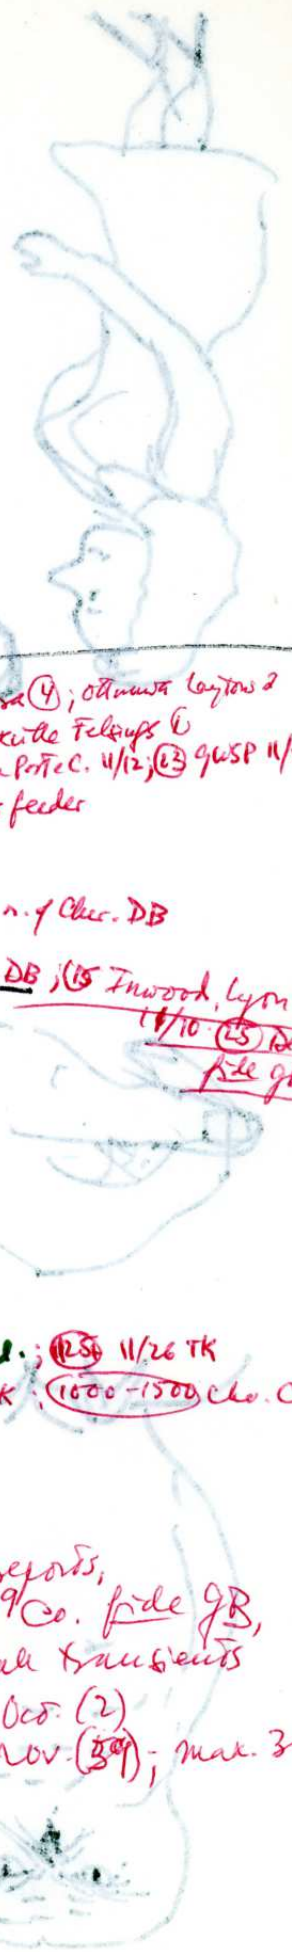 (4); ottumwa Laytons 2
Felsings (1)
Porte C. 11/12; (23) GWSP 11/
feeder
n. of Cher. DB
DB; (15 Inwood, Lyon
11/10. (25)
fide
; (125) 11/26 TK
K; (1000-1500) Che. C
reports,
9 Co. fide GB,
transients
Oct. (2)
Nov. (39); max. 3